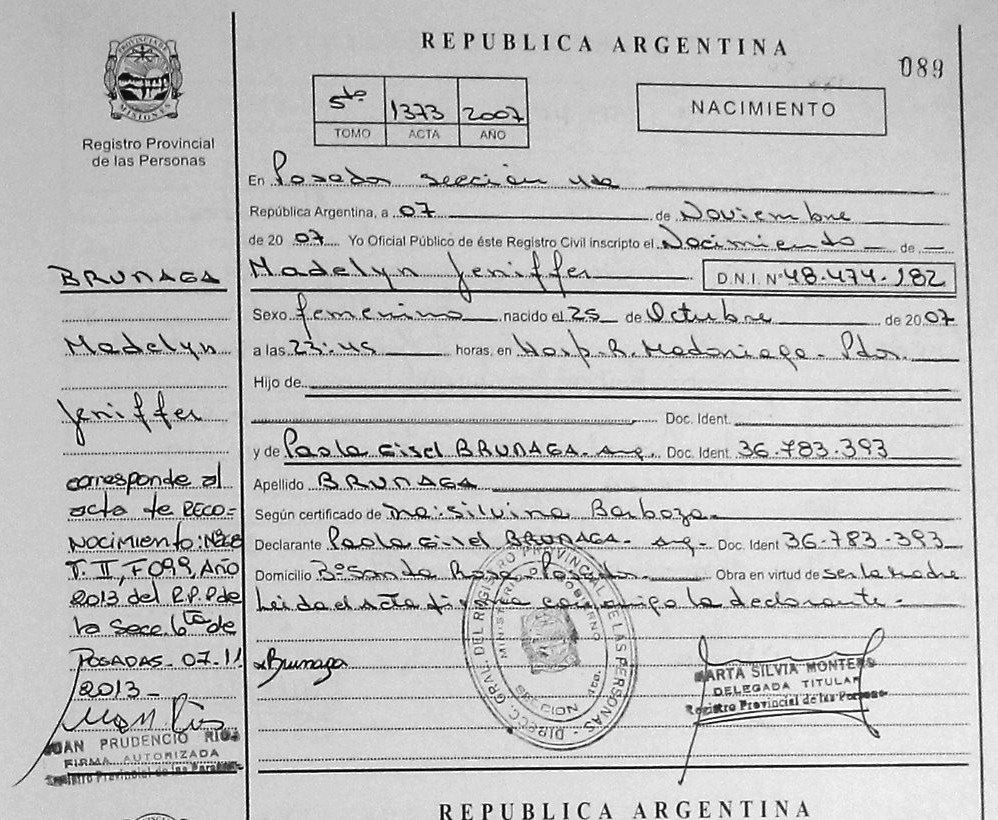 REPUBLICA ARGENTINA
089
PROVINCIA DE
MISIONES
Registro Provincial
de las Personas
5to 1373 2007
TOMO ACTA AÑO
NACIMIENTO
En Posadas sección 4ta
República Argentina, a 07 de Noviembre
de 2007 Yo Oficial Público de éste Registro Civil inscripto el Nacimiento de
Madelyn Jeniffer D.N.I. Nº 48.474.182
Sexo femenino nacido el 25 de Octubre de 2007
a las 23:45 horas, en Hosp. R. Madariaga - Pdas.
Hijo de
Doc. Ident.
y de Paola Gisel BRUNAGA. Arg. Doc. Ident. 36.783.393
Apellido BRUNAGA
Según certificado de Silvina Barboza
Declarante Paola Gisel BRUNAGA - Arg - Doc. Ident 36.783.393
Domicilio Bº Santa Rosa - Posadas Obra en virtud de ser la Madre
Leída el Acta firma conmigo la declarante -
Brunaga
DIRECC. GRAL. DEL REGISTRO PROVINCIAL DE LAS PERSONAS
MINISTERIO GOBIERNO
SECCION
MARTA SILVIA MONTERO
DELEGADA TITULAR
Registro Provincial de las Personas
BRUNAGA
Madelyn
Jeniffer
corresponde al
acta de RECO=
NOCIMIENTO:
T. II, Fº 099, Año
2013 del R.P.P de
la Secc. 6ta de
POSADAS - 07-11
2013 -
JUAN PRUDENCIO RIOS
FIRMA AUTORIZADA
Registro Provincial de las Personas
REPUBLICA ARGENTINA